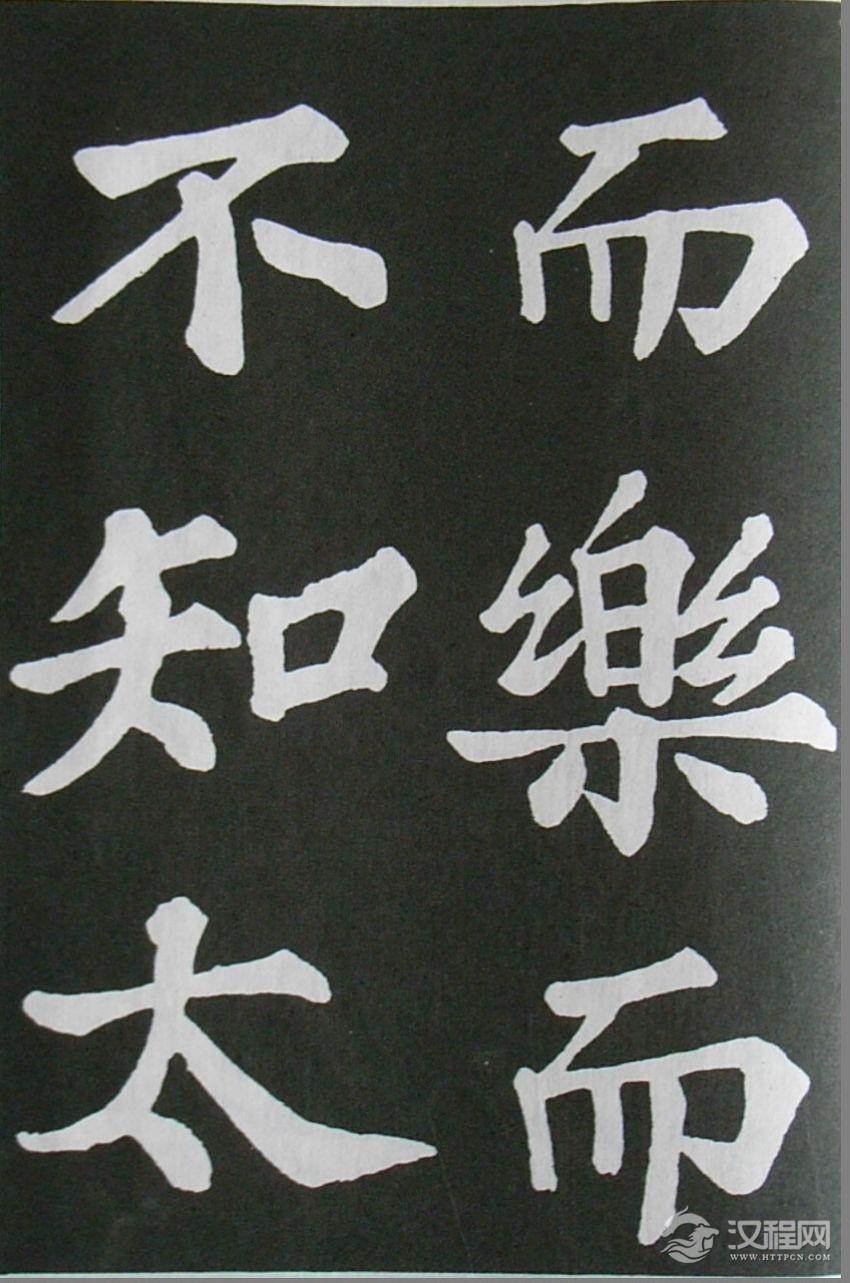 而樂而
不知太
汉程网
WWW.HTTPCN.COM